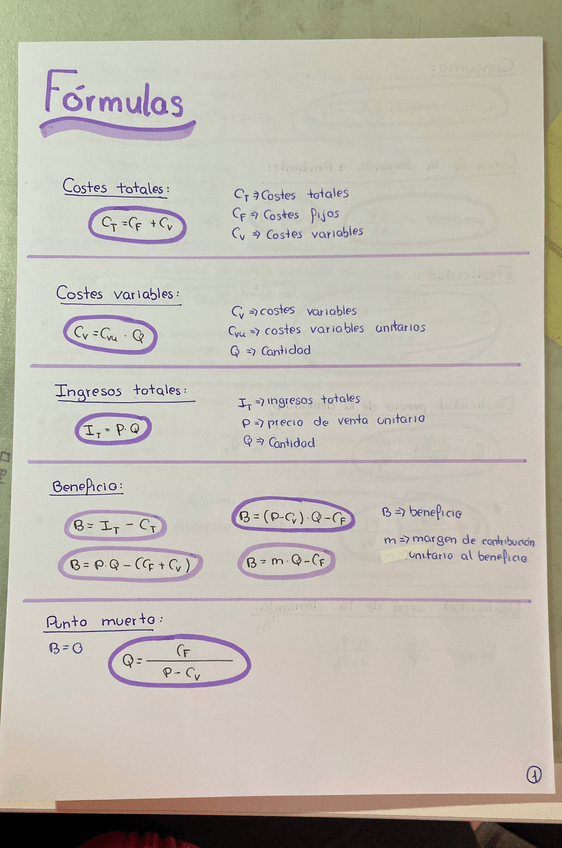 Fórmulas
Costes totales:
C_T = C_F + C_V
C_T ⇒ Costes totales
C_F ⇒ Costes fijos
C_V ⇒ Costes variables
Costes variables:
C_V = C_VU · Q
C_V ⇒ costes variables
C_VU ⇒ costes variables unitarios
Q ⇒ Cantidad
Ingresos totales:
I_T = P·Q
I_T ⇒ ingresos totales
P ⇒ precio de venta unitario
Q ⇒ Cantidad
Beneficio:
B = I_T - C_T
B = (P-C_V)·Q-C_F
B = P·Q - (C_F + C_V)
B = m·Q-C_F
B ⇒ beneficio
m ⇒ margen de contribución
unitario al beneficio
Punto muerto:
B = 0
Q = C_F / P - C_V
1